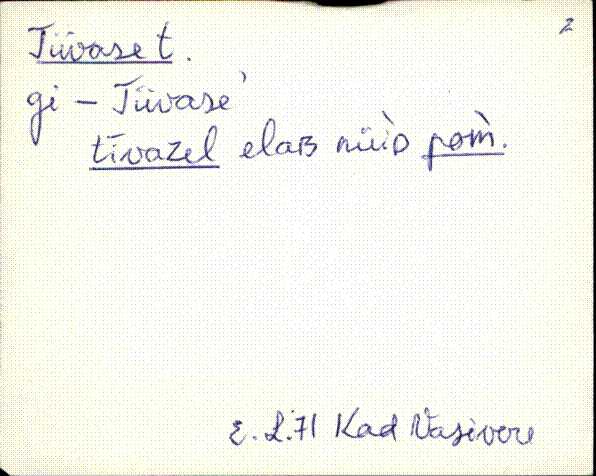 2
Tiivase t.
gi – Tiivase'
tīvazel elaʙ nüìᴅ pom̀.
E. L. 71 Kad Vasivere